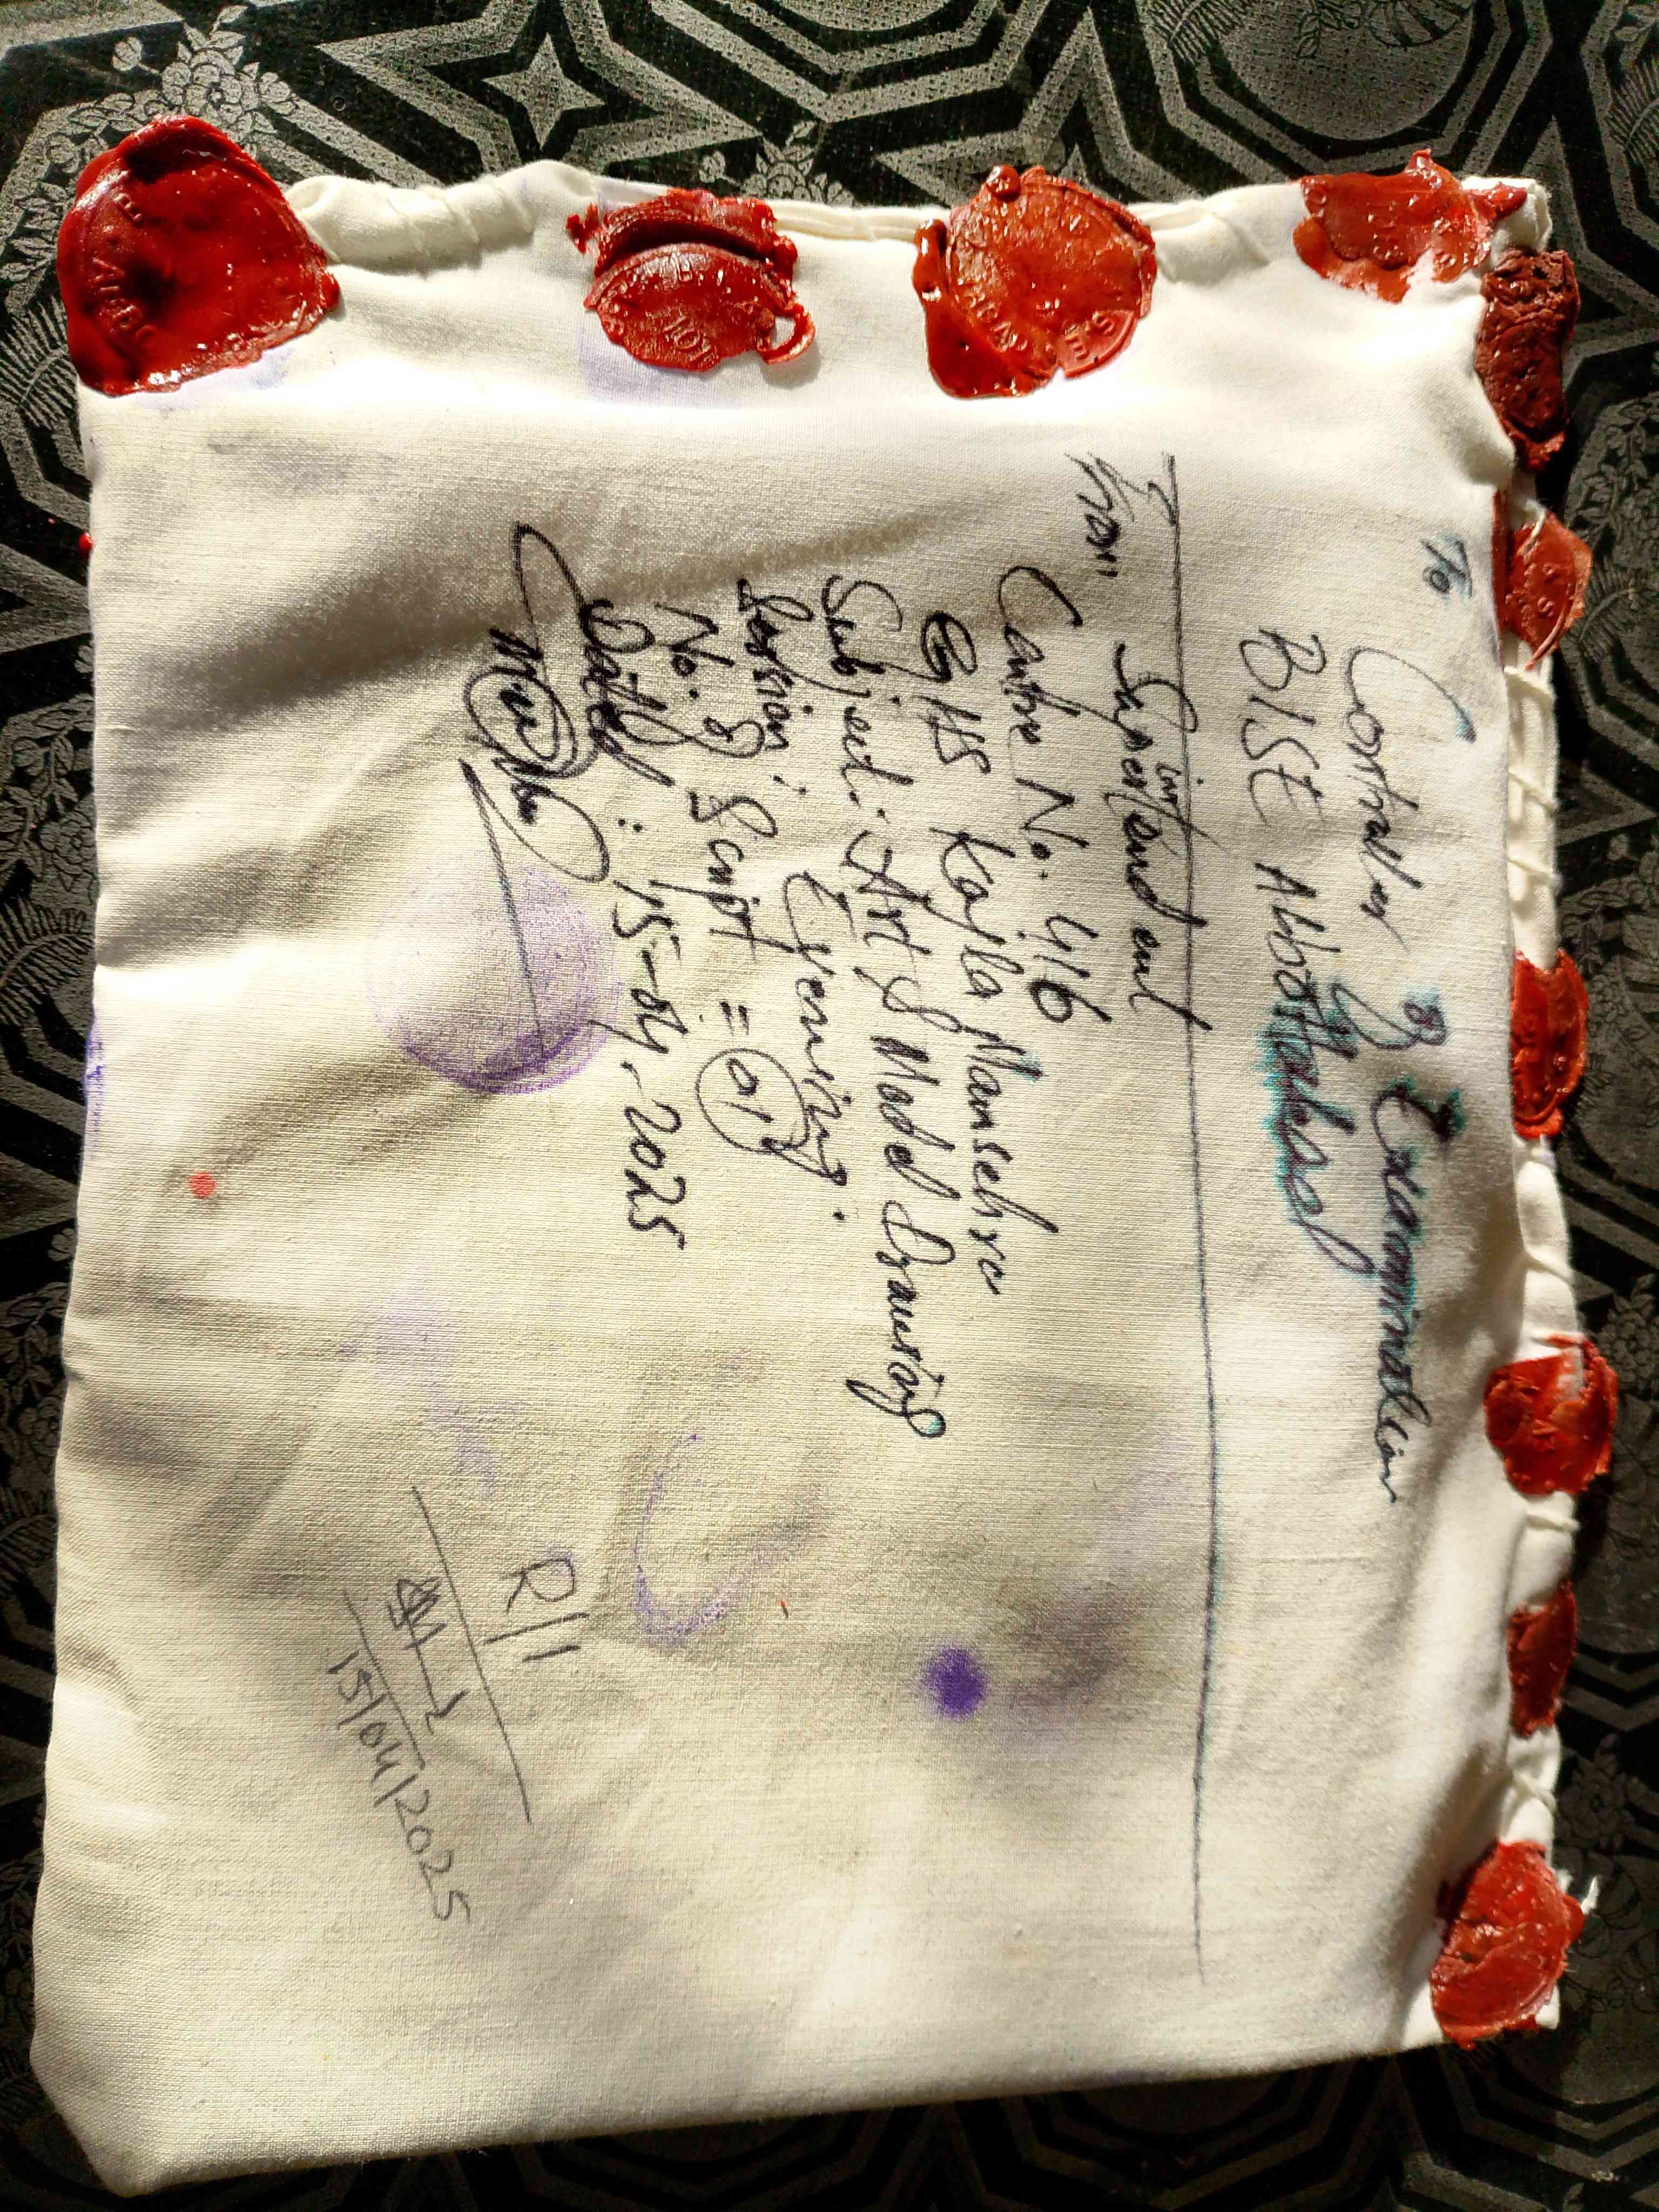 To
Controller of Examination
BISE Abbottabad
From
Superintendent
Centre No. 416
GHS Kojla Mansehra
Subject: Art & Model Drawing
Session: Evening.
No. of Script = 01
Dated: 15-04-2025
R/1
15/04/2025